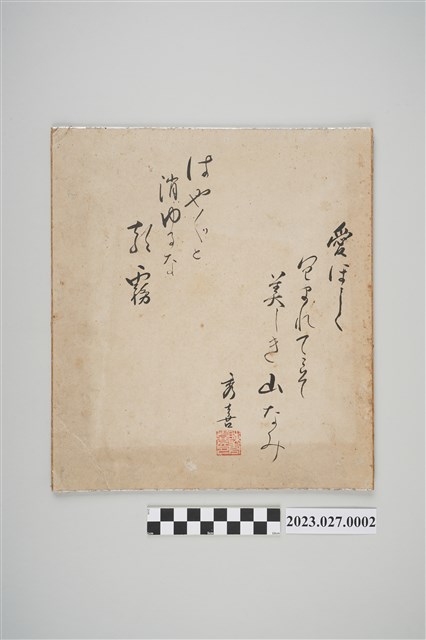 愛ほしく
包まれてこそ
美しき山なみ
はや〱と
消ゆるな
朝霧
秀喜
2023.027.0002